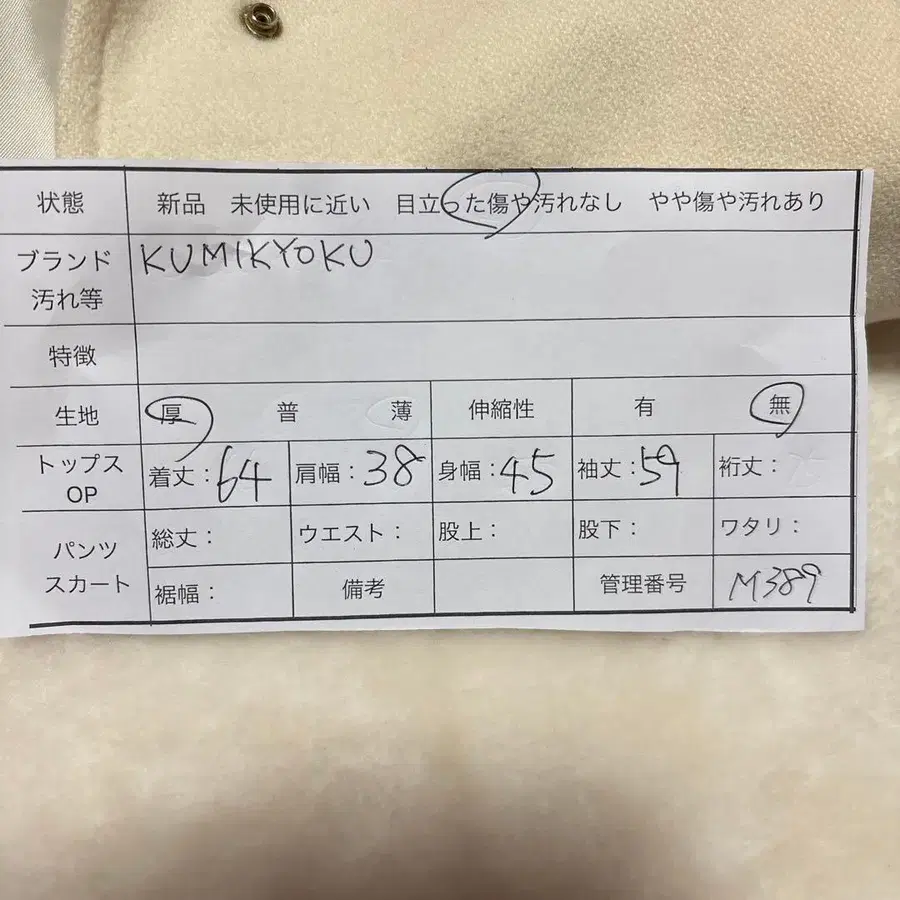 状態 新品 未使用に近い 目立った傷や汚れなし やや傷や汚れあり
ブランド KUMIKYOKU
汚れ等
特徴
生地 厚 普 薄 伸縮性 有 無
トップス
OP
着丈:64 肩幅:38 身幅:45 袖丈:59 裄丈:
パンツ
スカート
総丈: ウエスト: 股上: 股下: ワタリ:
裾幅: 備考 管理番号 M389